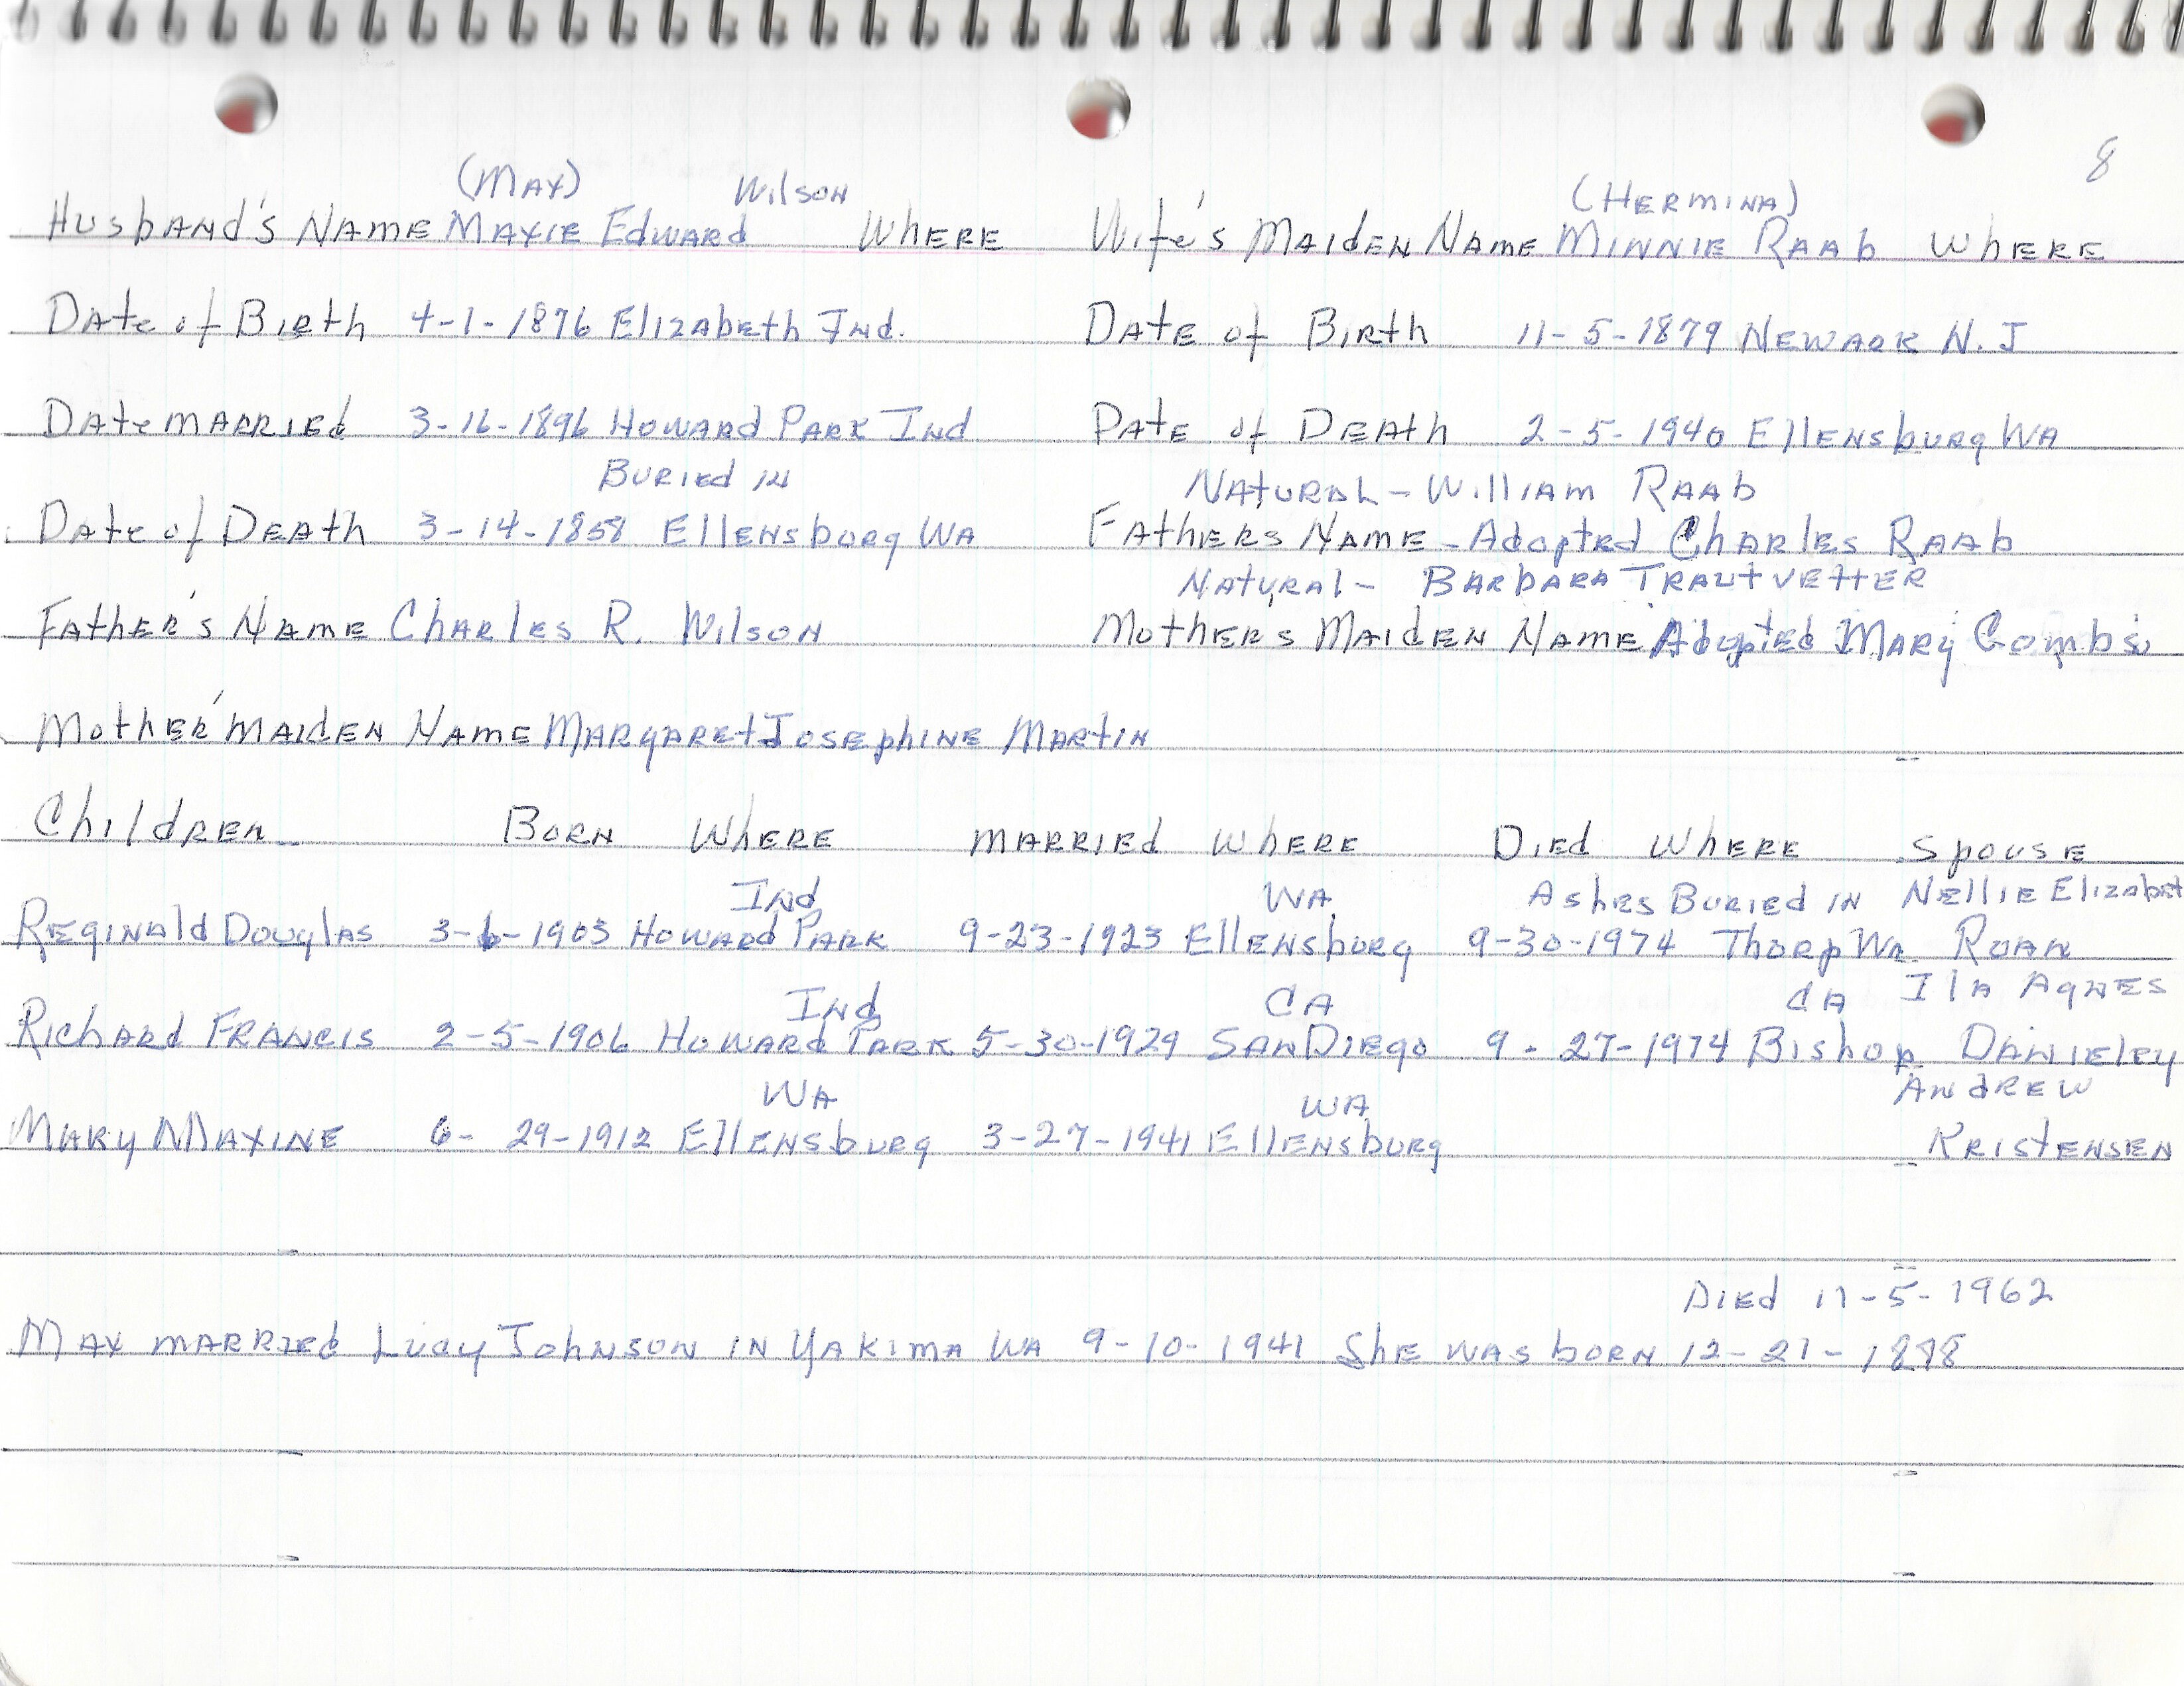 8
(MAX) Wilson (HERMINA)
Husband's Name Maxie Edward Where Wife's Maiden Name Minnie Raab Where
Date of Birth 4-1-1876 Elizabeth Ind. Date of Birth 11-5-1879 Newark N.J
Date married 3-16-1896 Howard Park Ind Date of Death 2-5-1940 Ellensburg WA
Buried in Natural - William Raab
Date of Death 3-14-1858 Ellensburg WA Fathers Name - Adopted Charles Raab
Natural - Barbara Trautvetter
Father's Name Charles R. Wilson Mothers Maiden Name Adopted Mary Combs
Mother' maiden Name Margaret Josephine Martin
Children Born Where Married Where Died Where Spouse
Ind WA Ashes Buried in Nellie Elizabet
Reginald Douglas 3-6-1903 Howard Park 9-23-1923 Ellensburg 9-30-1974 Thorp Wa Roan
Ind CA CA Ila Agnes
Richard Francis 2-5-1906 Howard Park 5-30-1929 San Diego 9-27-1974 Bishop Danieley
WA WA Andrew
Mary Maxine 6-29-1912 Ellensburg 3-27-1941 Ellensburg Kristensen
Died 11-5-1962
Max married Lucy Johnson in Yakima WA 9-10-1941 She was born 12-21-